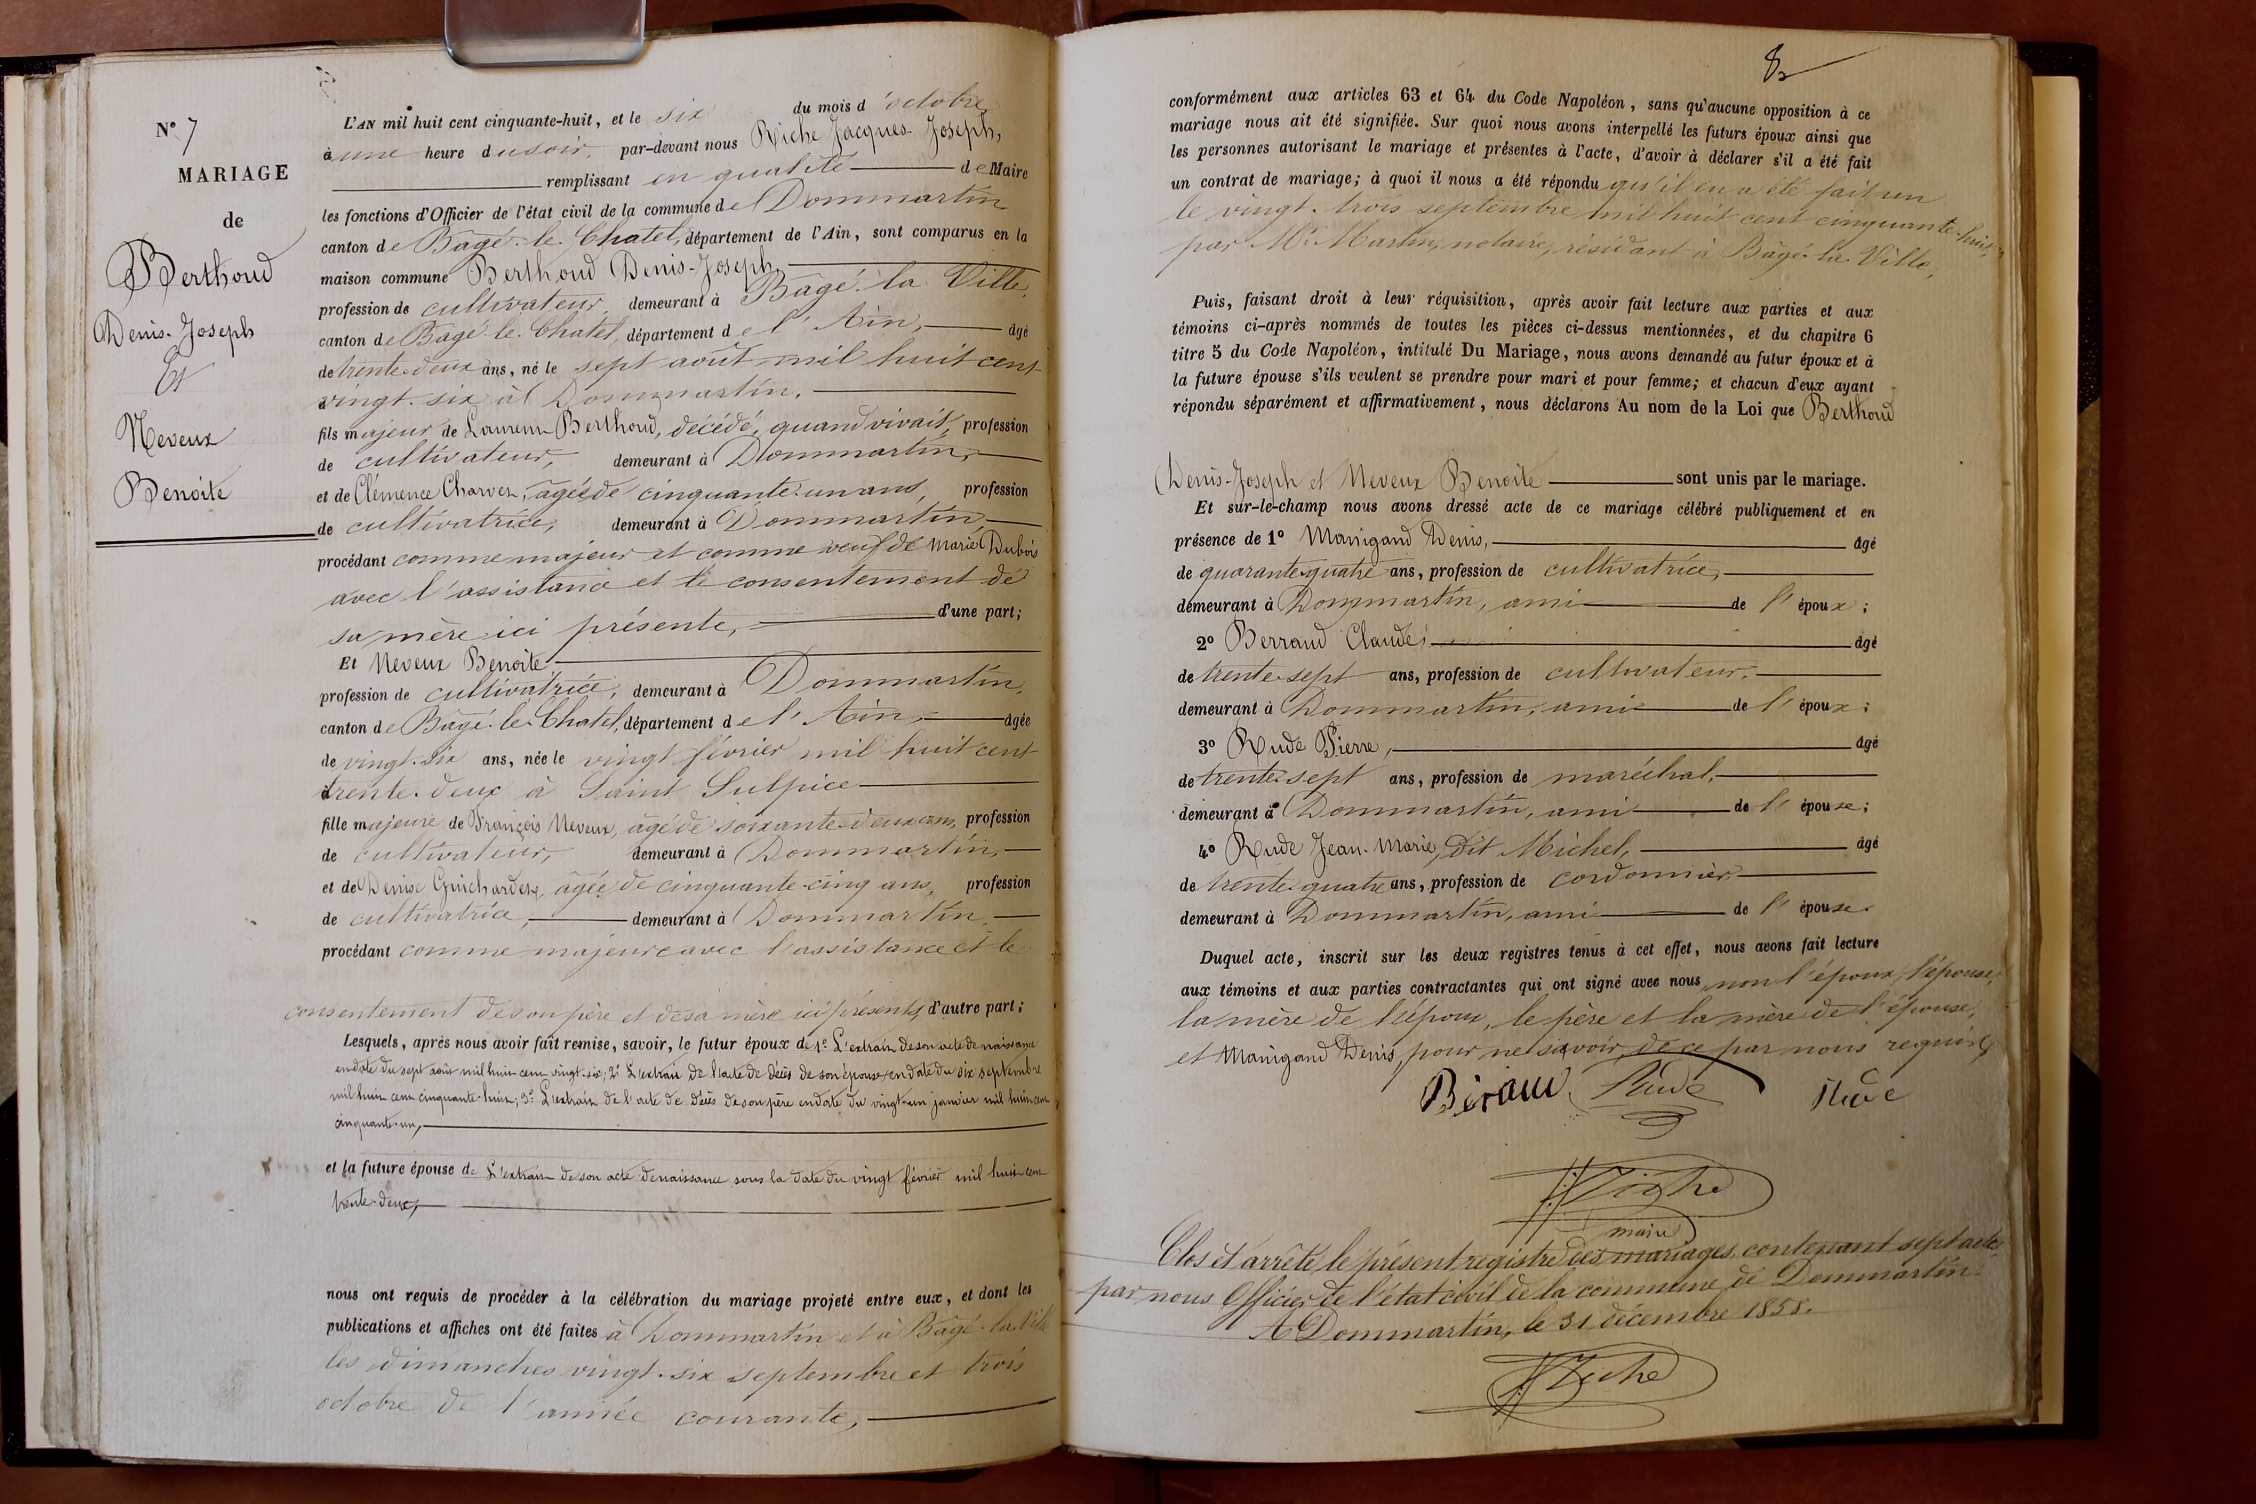 N° 7
MARIAGE
de
Berthoud
Denis-Joseph
Et
Neveux
Benoite
L'AN mil huit cent cinquante-huit, et le six du mois d'octobre,
à une heure du soir, par-devant nous Riche Jacques Joseph,
remplissant en qualité de Maire
les fonctions d'Officier de l'état civil de la commune de Dommartin
canton de Bagé-le-Chatel, département de l'Ain, sont comparus en la
maison commune Berthoud Denis-Joseph,
profession de cultivateur, demeurant à Bagé-la-Ville,
canton de Bagé-le-Chatel, département de l'Ain, âgé
de trente-deux ans, né le sept août mil huit cent
vingt-six à Dommartin,
fils majeur de Laurent Berthoud, décédé, quand vivait, profession
de cultivateur, demeurant à Dommartin,
et de Clémence Charvet, âgée de cinquante-un ans, profession
de cultivatrice, demeurant à Dommartin,
procédant comme majeur et comme veuf de Marie Dubois
avec l'assistance et le consentement de
sa mère ici présente, d'une part;
Et Neveux Benoite
profession de cultivatrice, demeurant à Dommartin,
canton de Bagé-le-Chatel, département de l'Ain, âgée
de vingt-six ans, née le vingt février mil huit cent
trente-deux à Saint Sulpice
fille majeure de François Neveux, âgé de soixante-deux ans, profession
de cultivateur, demeurant à Dommartin,
et de Denise Guichardet, âgée de cinquante-cinq ans, profession
de cultivatrice, demeurant à Dommartin,
procédant comme majeure avec l'assistance et le
consentement de son père et de sa mère ici présents, d'autre part;
Lesquels, après nous avoir fait remise, savoir, le futur époux de 1° L'extrait de son acte de naissance
en date du sept août mil huit cent vingt-six; 2° L'extrait de l'acte de décès de son épouse en date du dix septembre
mil huit cent cinquante-huit; 3° L'extrait de l'acte de décès de son père en date du vingt-un janvier mil huit cent
cinquante-un,
et la future épouse de L'extrait de son acte de naissance sous la date du vingt février mil huit cent
trente-deux,
nous ont requis de procéder à la célébration du mariage projeté entre eux, et dont les
publications et affiches ont été faites à Dommartin et à Bagé-la-Ville
les dimanches vingt-six septembre et trois
octobre de l'année courante,
8
conformément aux articles 63 et 64 du Code Napoléon, sans qu'aucune opposition à ce
mariage nous ait été signifiée. Sur quoi nous avons interpellé les futurs époux ainsi que
les personnes autorisant le mariage et présentes à l'acte, d'avoir à déclarer s'il a été fait
un contrat de mariage; à quoi il nous a été répondu qu'il en a été fait un
le vingt-trois septembre mil huit cent cinquante-huit,
par Me Martin, notaire, résidant à Bagé-la-Ville,
Puis, faisant droit à leur réquisition, après avoir fait lecture aux parties et aux
témoins ci-après nommés de toutes les pièces ci-dessus mentionnées, et du chapitre 6
titre 5 du Code Napoléon, intitulé Du Mariage, nous avons demandé au futur époux et à
la future épouse s'ils veulent se prendre pour mari et pour femme; et chacun d'eux ayant
répondu séparément et affirmativement, nous déclarons Au nom de la Loi que Berthoud
Denis-Joseph et Neveux Benoite sont unis par le mariage.
Et sur-le-champ nous avons dressé acte de ce mariage célébré publiquement et en
présence de 1° Manigand Denis, âgé
de quarante-quatre ans, profession de cultivatrice,
demeurant à Dommartin, ami de l'époux;
2° Berraud Claude, âgé
de trente-sept ans, profession de cultivateur,
demeurant à Dommartin, ami de l'époux;
3° Rude Pierre, âgé
de trente-sept ans, profession de maréchal,
demeurant à Dommartin, ami de l'épouse;
4° Rude Jean-Marie, dit Michel, âgé
de trente-quatre ans, profession de cordonnier
demeurant à Dommartin, ami de l'épouse.
Duquel acte, inscrit sur les deux registres tenus à cet effet, nous avons fait lecture
aux témoins et aux parties contractantes qui ont signé avec nous, non l'époux, l'épouse,
la mère de l'époux, le père et la mère de l'épouse,
et Manigand Denis, pour ne savoir, de ce par nous requis
Béraud Rude Rude
Riche
maire
Clos et arrêté le présent registre des mariages, contenant sept actes
par nous Officier de l'état civil de la commune de Dommartin.
A Dommartin, le 31 décembre 1858.
Riche